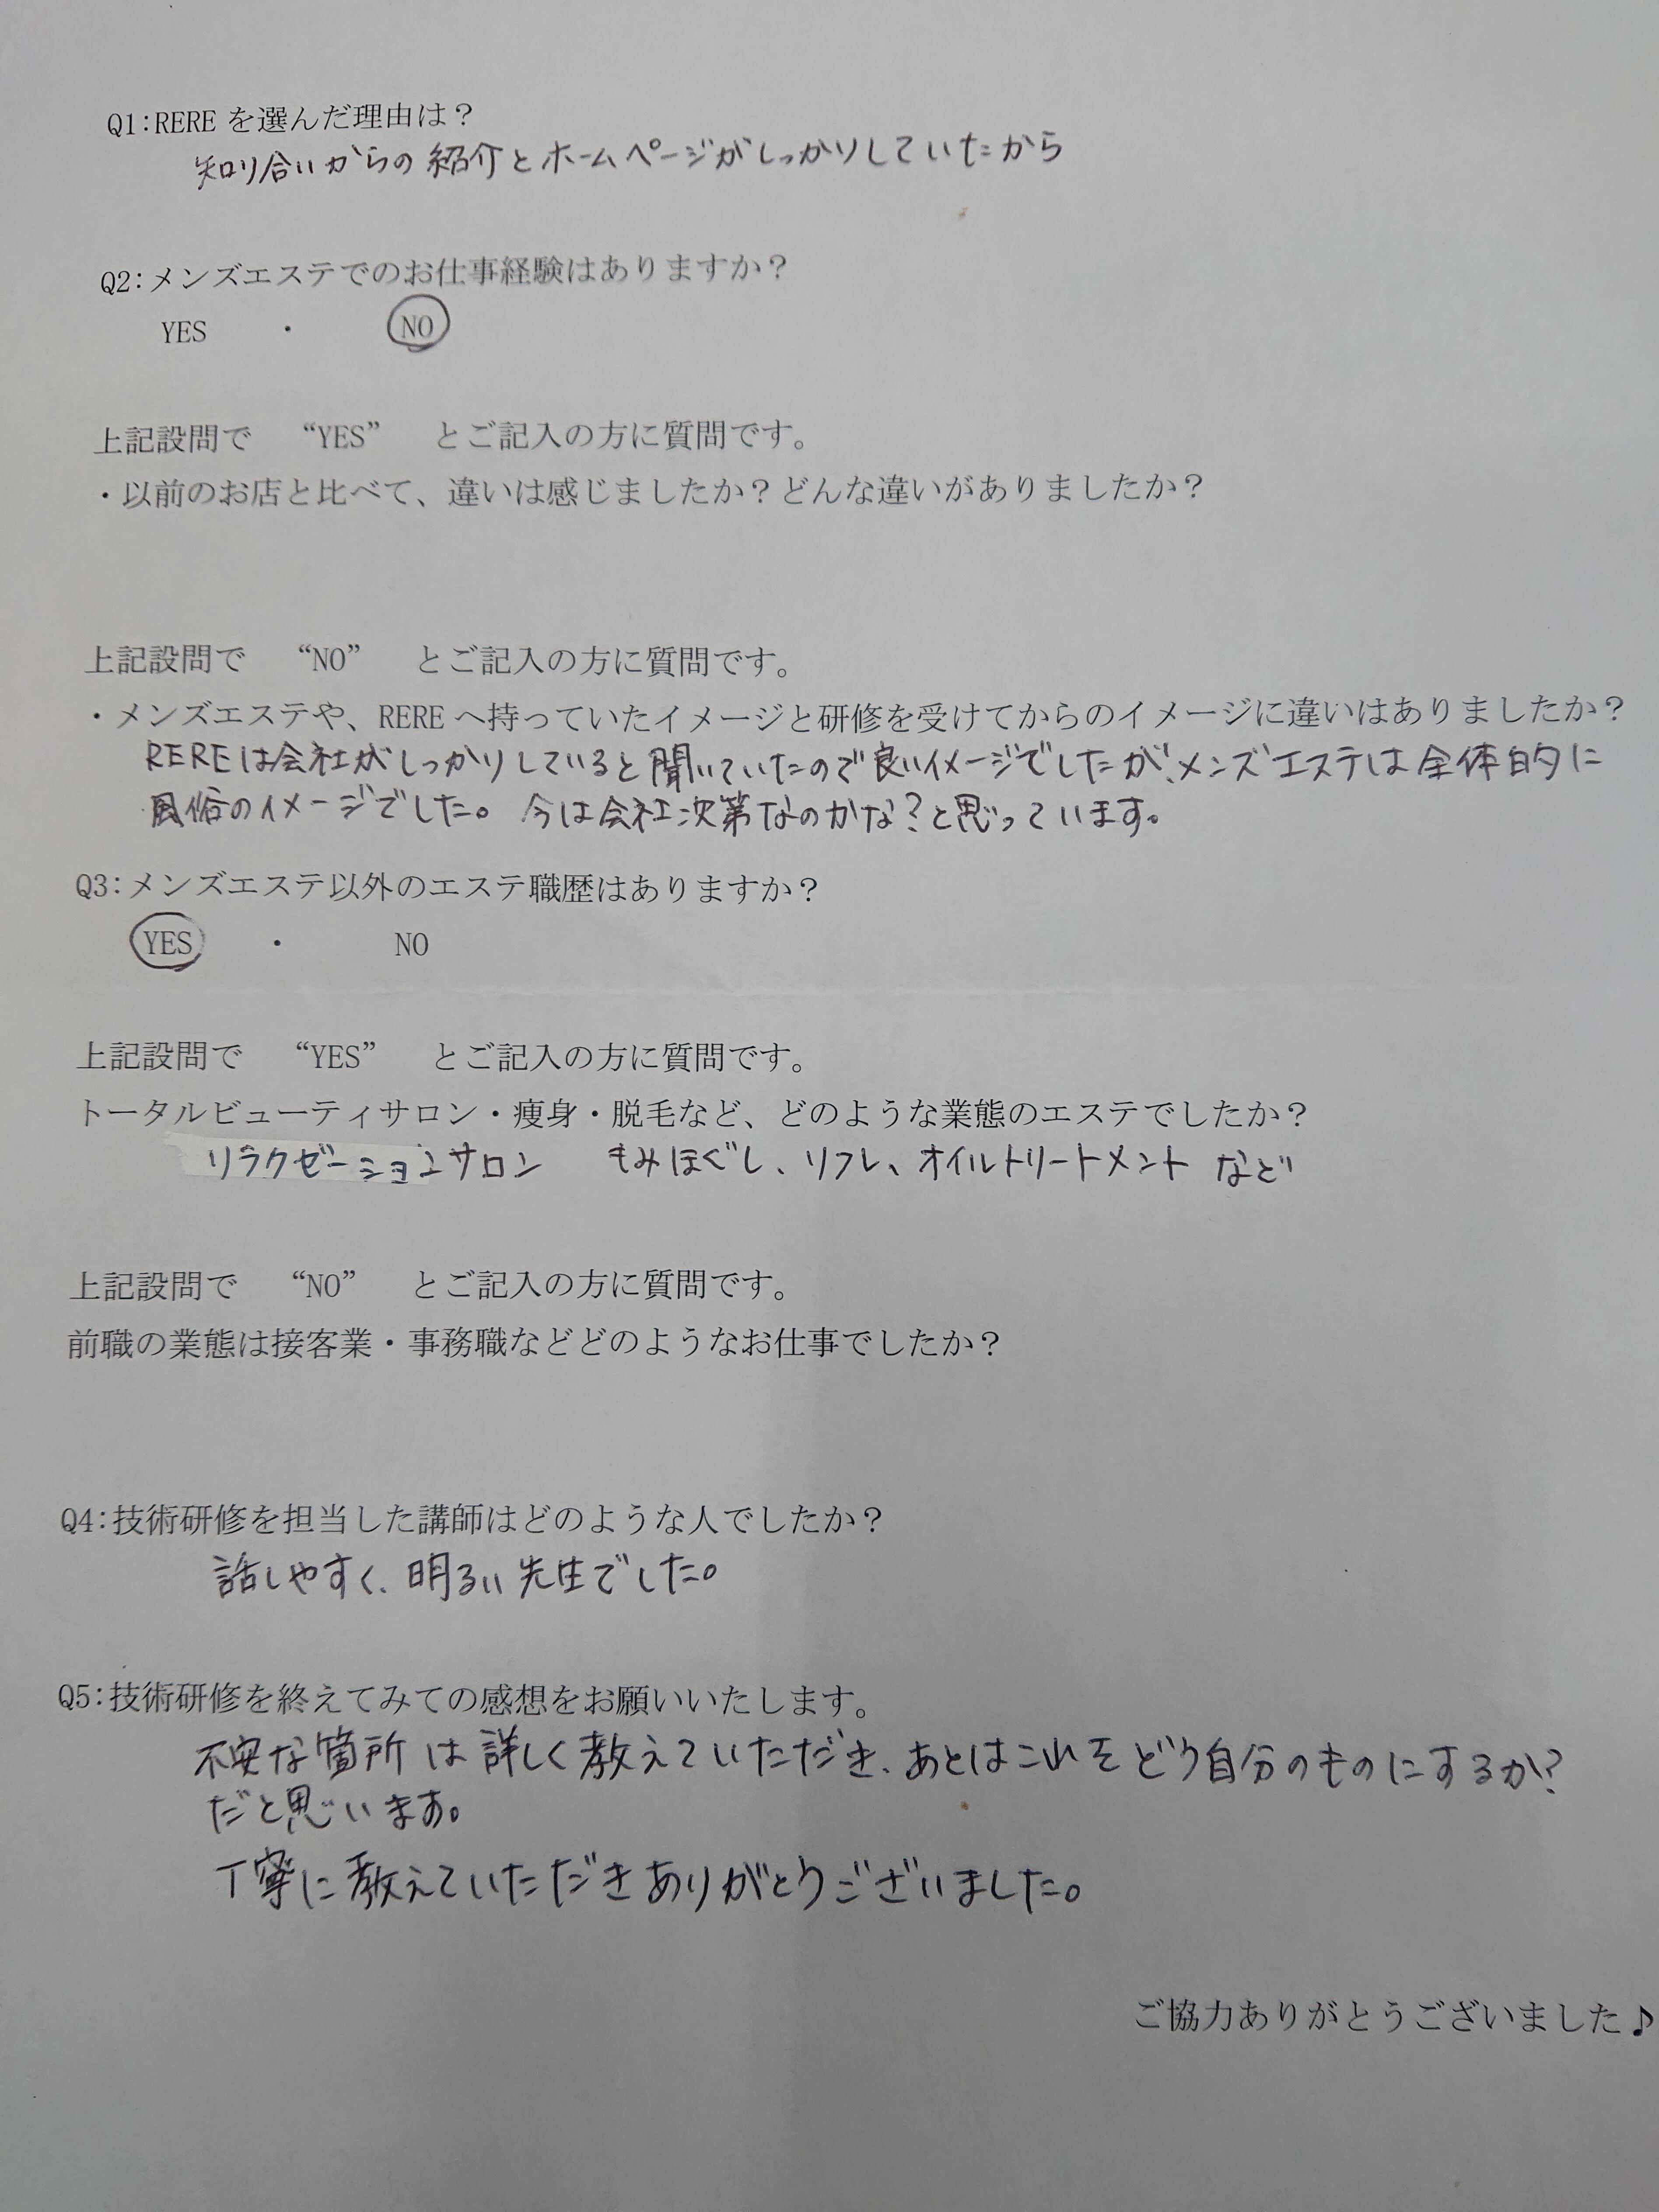 Q1:RERE を選んだ理由は？
知り合いからの紹介とホームページがしっかりしていたから
Q2:メンズエステでのお仕事経験はありますか？
YES ・ NO
上記設問で “YES” とご記入の方に質問です。
・以前のお店と比べて、違いは感じましたか？どんな違いがありましたか？
上記設問で “NO” とご記入の方に質問です。
・メンズエステや、RERE へ持っていたイメージと研修を受けてからのイメージに違いはありましたか？
REREは会社がしっかりしていると聞いていたので良いイメージでしたが、メンズエステは全体的に
風俗のイメージでした。今は会社次第なのかな？と思っています。
Q3:メンズエステ以外のエステ職歴はありますか？
YES ・ NO
上記設問で “YES” とご記入の方に質問です。
トータルビューティサロン・痩身・脱毛など、どのような業態のエステでしたか？
リラクゼーションサロン もみほぐし、リフレ、オイルトリートメント など
上記設問で “NO” とご記入の方に質問です。
前職の業態は接客業・事務職などどのようなお仕事でしたか？
Q4:技術研修を担当した講師はどのような人でしたか？
話しやすく、明るい先生でした。
Q5:技術研修を終えてみての感想をお願いいたします。
不安な箇所は詳しく教えていただき、あとはこれをどう自分のものにするか？
だと思います。
丁寧に教えていただきありがとうございました。
ご協力ありがとうございました♪